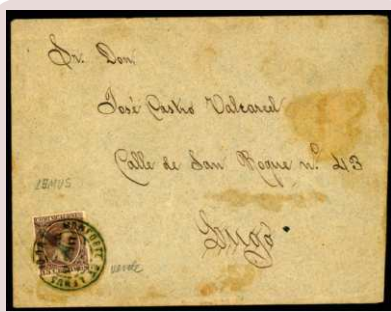 Sr. Don,
José Castro Valcarcel
Calle de San Roque n.º 43
Lugo
LEMUS
verde